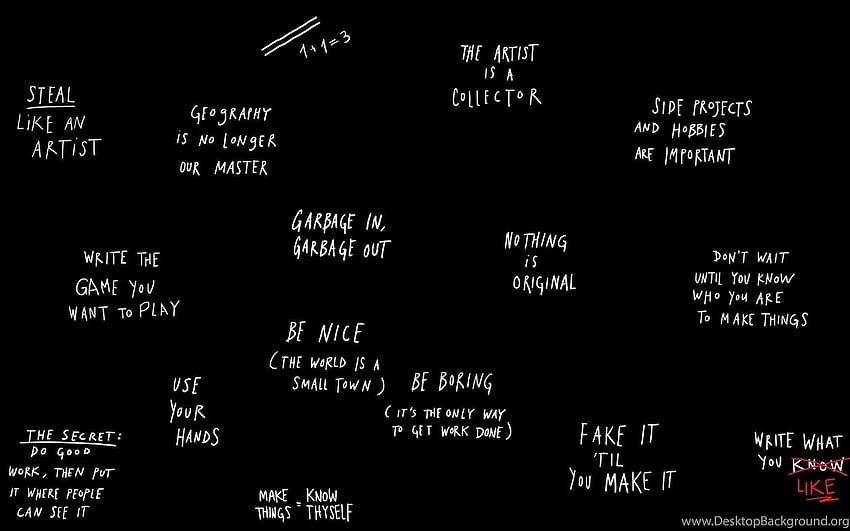 1+1=3
STEAL
LIKE AN
ARTIST
GEOGRAPHY
iS NO LONGER
OUR MASTER
THE ARTIST
iS A
COLLECTOR
SIDE PROJECTS
AND HOBBIES
ARE IMPORTANT
GARBAGE IN,
GARBAGE OUT
WRITE THE
GAME YOU
WANT TO PLAY
NOTHING
iS
ORIGINAL
DON'T WAIT
UNTIL YOU KNOW
WHO YOU ARE
TO MAKE THINGS
BE NICE
(THE WORLD IS A
SMALL TOWN)
USE
YOUR
HANDS
BE BORING
(IT'S THE ONLY WAY
TO GET WORK DONE)
THE SECRET:
DO GOOD
WORK, THEN PUT
IT WHERE PEOPLE
CAN SEE IT
MAKE THINGS = KNOW THYSELF
FAKE IT
'TIL
YOU MAKE IT
WRITE WHAT
YOU KNOW
LIKE
www.DesktopBackground.org